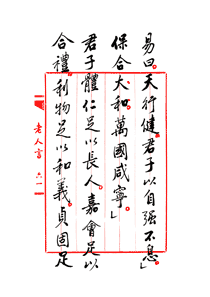 易曰。「天行健君子以自强不息」
保合大和萬國咸寧」
君子體仁足以長人。嘉會足以
合禮。利物足以和義。貞固足
老人言 六一